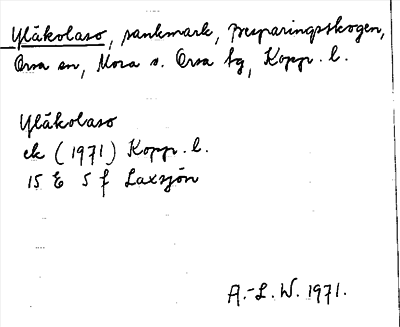 Yläkolaso, sankmark, besparingsskogen,
Orsa sn, Mora o. Orsa tg, Kopp. l.
Yläkolaso
ek (1971) Kopp. l.
15 E 5 f Laxsjön
A.-L. W. 1971.